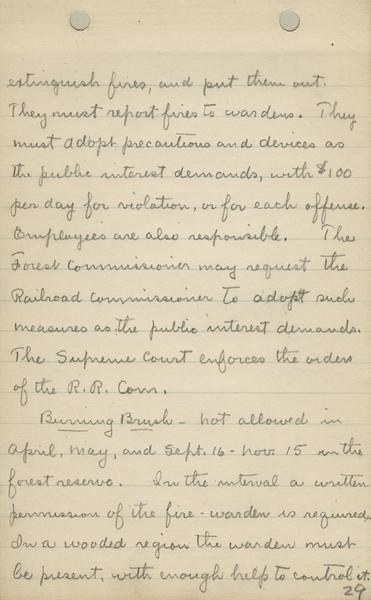 extinguish fires, and put them out.
They must report fires to wardens. They
must adopt precautions and devices as
the public interest demands, with $100
per day for violation, or for each offense.
Employees are also responsible. The
Forest Commissioner may request the
Railroad Commissioner to adopt such
measures as the public interest demands.
The Supreme Court enforces the orders
of the R.R. Com.
Burning Brush - not allowed in
April, May, and Sept. 16 - Nov. 15 in the
forest reserve. In the interval a written
permission of the fire-warden is required.
In a wooded region the warden must
be present, with enough help to control it.
29